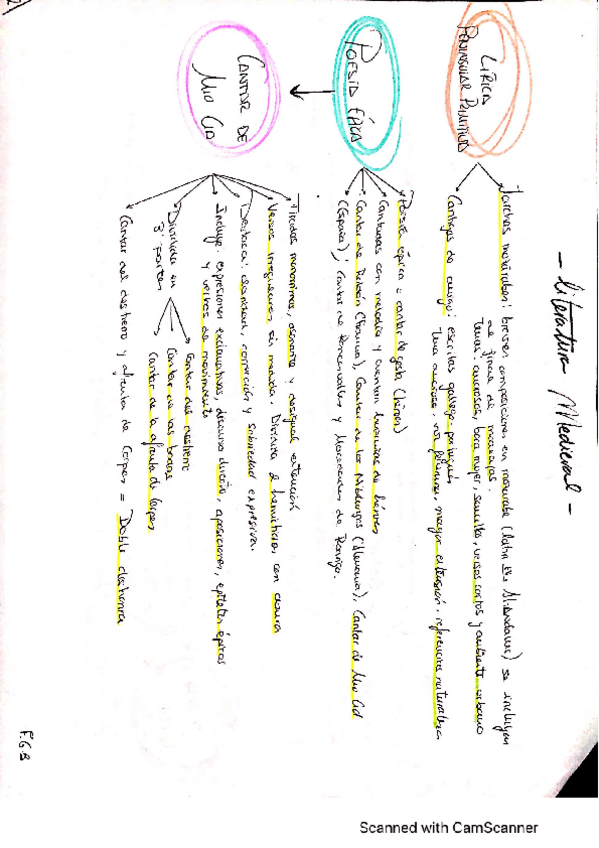 - Literatura Medieval -
LÍRICA
PENINSULAR PRIMITIVA
Jarchas mozárabes: breves composiciones en mozárabe (latín Ele Al-Andalus) se incluyen
al final de moaxajas.
Tema: amorosa, boca mujer, sencilla, versos cortos y ambiente urbano
Cantigas de amigo: escritas gallego-portugués
Tema amoroso, voz femenina, mayor extensión, referencias naturaleza
POESÍA ÉPICA
Poesía épica = cantar de gesta (héroes)
Cantadas con melodía y cuentan hazañas de héroes
Cantar de Roldán (Francia), Cantar de los Nibelungos (Alemania), Cantar de Mio Cid
(España), Cantar de Roncesvalles y Mocedades de Rodrigo.
CANTAR DE
MIO CID
Tiradas monorrimas, asonante y desigual extensión
Versos irregulares, sin medida. Divididos 2 hemistiquios con cesura
Destaca: claridad, narración y sobriedad expresiva.
Incluye: expresiones exclamativas, discurso directo, aposiciones, epítetos épicos
y verbos de movimiento
Dividida en
3 partes
Cantar del destierro
Cantar de las bodas
Cantar de la afrenta de Corpes
Cantar del destierro y afrenta de Corpes = Doble deshonra
F.G.B
Scanned with CamScanner